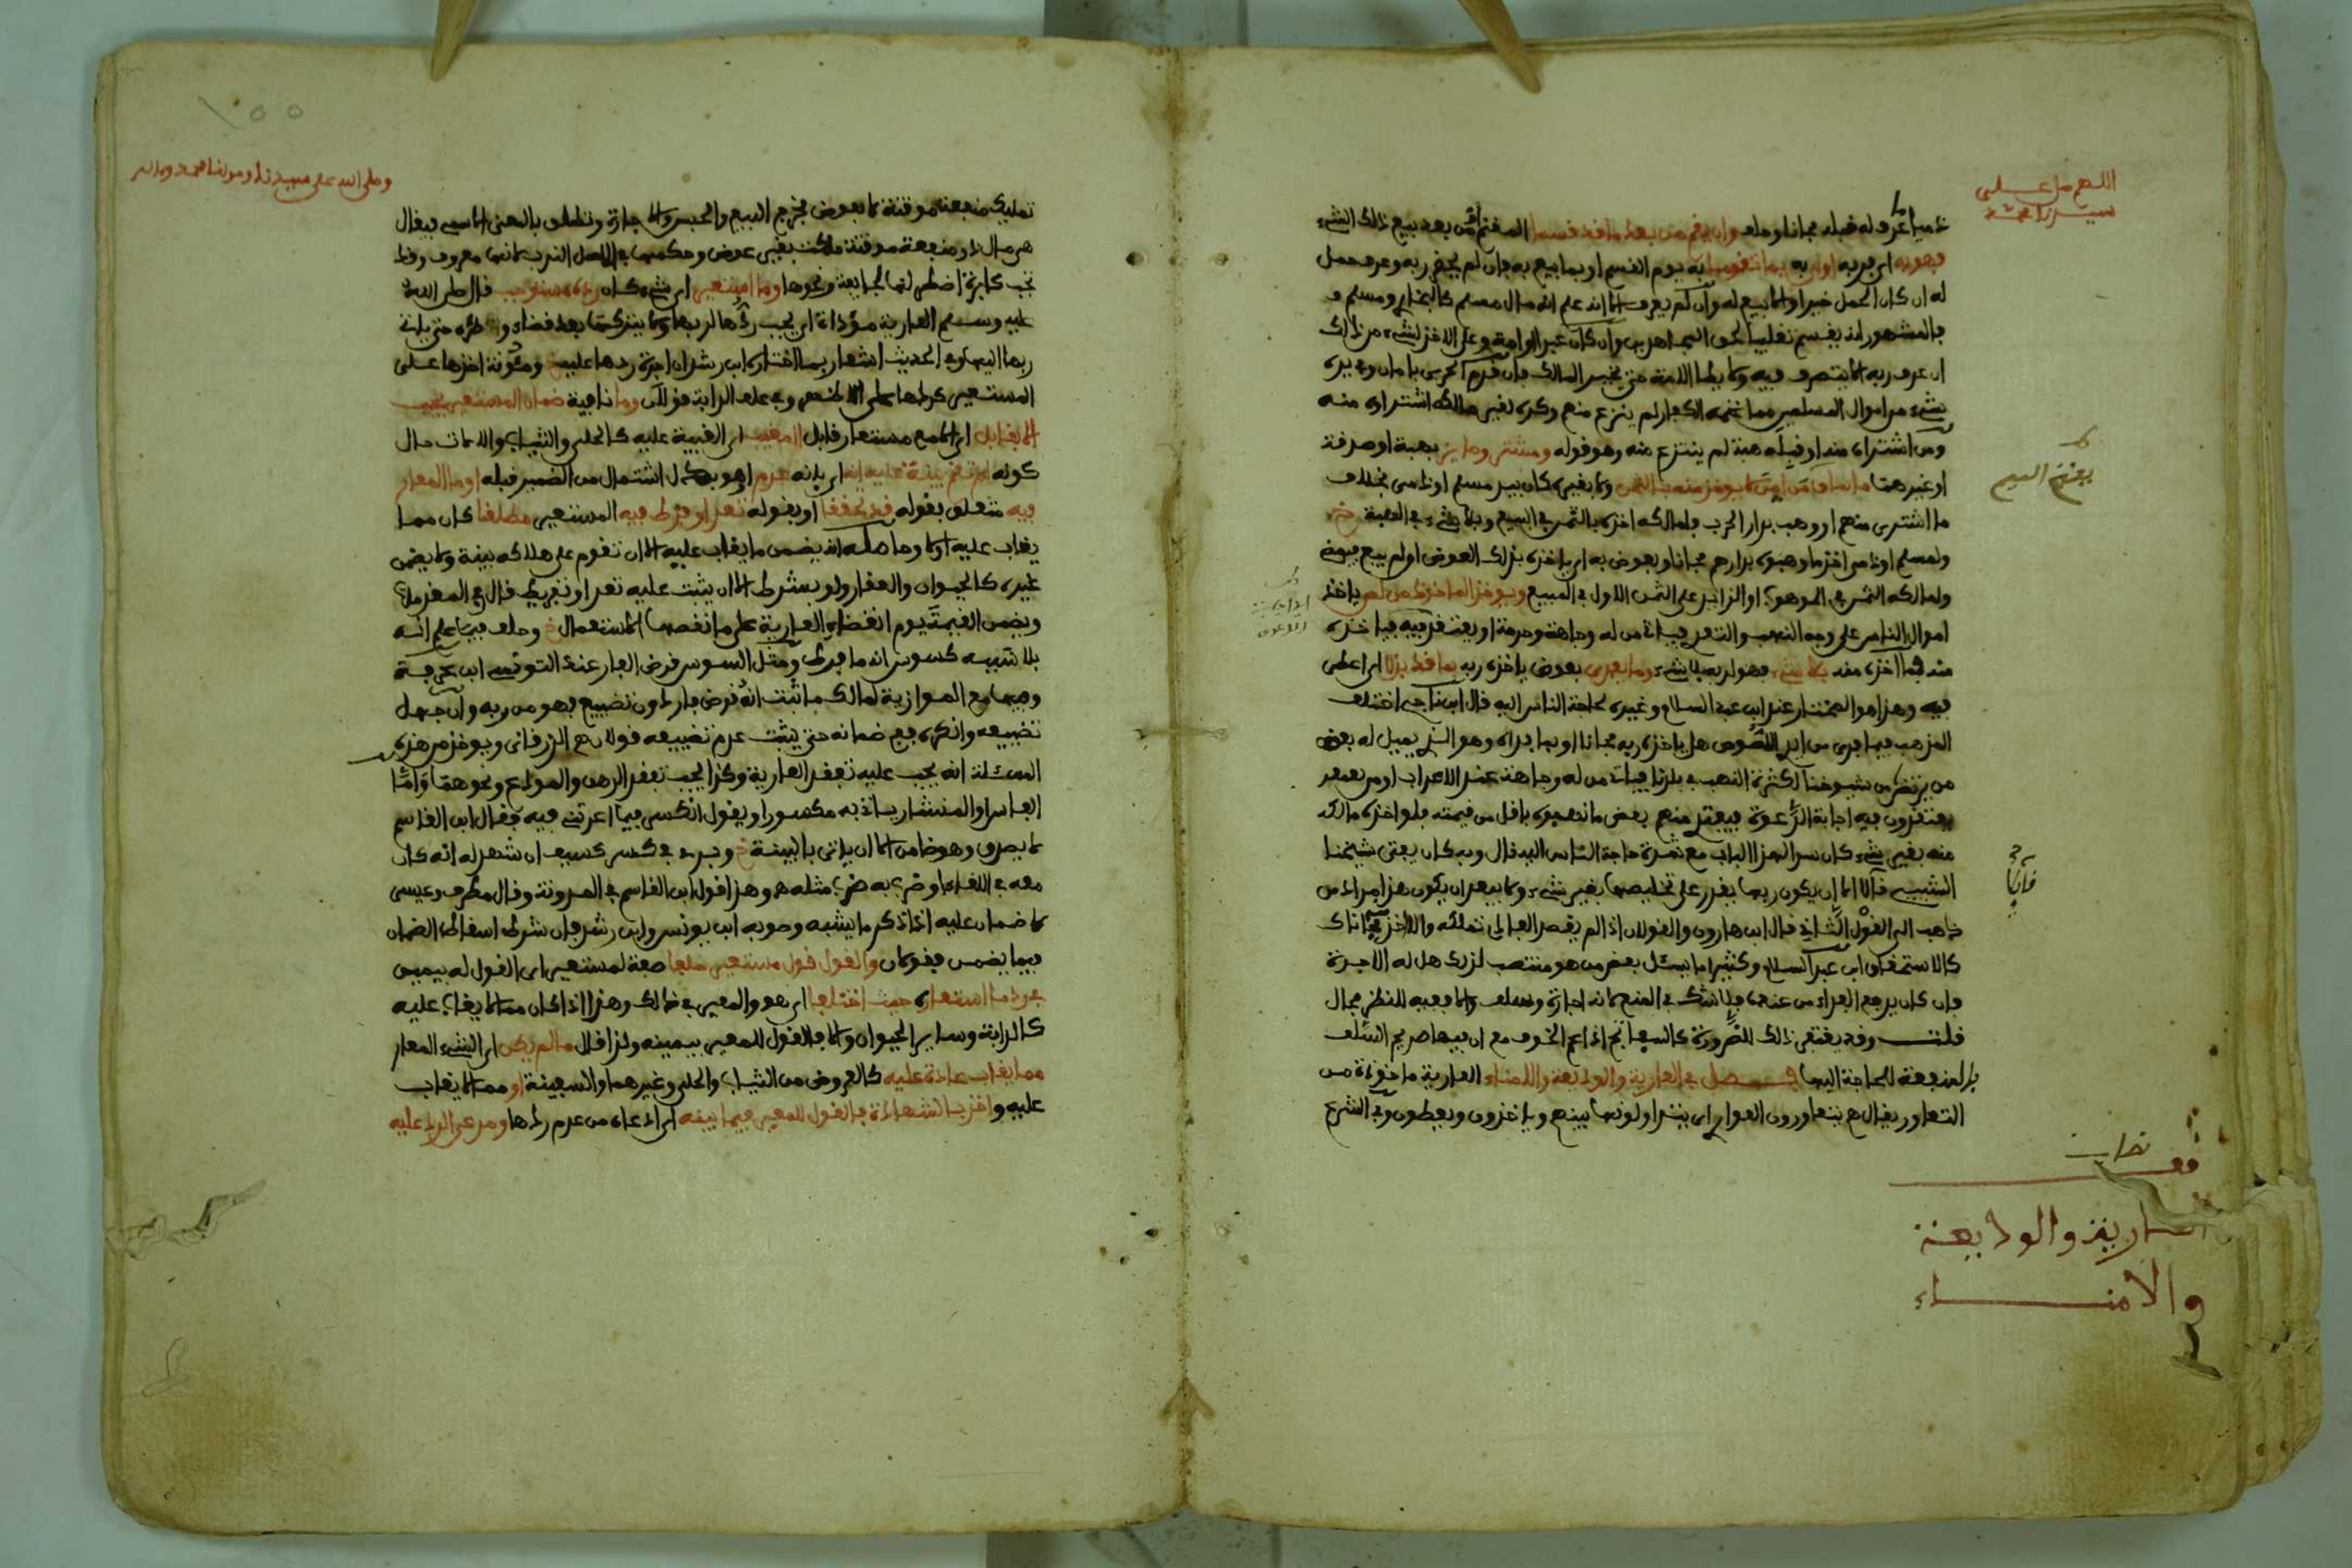 اللهم صل على
سيدنا محمد
ذميا عرف له قبله مجانا وحلف وان يقم من بعد ما قد قسما المغنم او من بعد بيع ذلك الشيء
فهو به اي بربه اولى به بما تقوما به يوم القسم او بما بيع به فان لم يحضر ربه وعرف حمل
له ان كان الحمل خيرا والا بيع له وان لم يعرف الا انه علم انه مال مسلم كالبخاري ومسلم
فالمشهور انه يقسم تغليبا لحق المجاهدين وان كان غير الواحد وعلى الاخذ لشيء من ذلك
ان عرف ربه الا يتصرف فيه ولا يطا الامة حتى يخير المالك فان قدم الحربي بامان وبيده
شيء من اموال المسلمين مما غنمه الكفار لم ينزع منهم وكره لغير مالكه اشتراؤه منه
ومن اشتراه منه او قبله هبة لم ينتزع منه وهو قوله ومشتر وحايز بهبة او صدقة
او غيرهما ما ساق من امن لا يوخذ منه بالثمن ولا بغيره كان بيد مسلم او ذمي بخلاف
ما اشترى منهم او وهب بدار الحرب فلمالكه اخذه بالثمن في البيع وبلا شيء في الهبة
ولمسلم او ذمي اخذ ما وهبوه بدارهم مجانا وبعوض به ان ياخذه بذلك العوض ان لم يبع فيمضي
ولمالكه الثمن في الموهوب او الزايد على الثمن الاول في المبيع ويوخذ الماخوذ من لص ياخذ
اموال الناس على وجه النهب والتعدي فياتي من له وجاهة وحرمة او يعتقد فيه فياخذه
منه فما اخذه منه بلا شيء فهو لربه بلا شيء وما يفدى بعوض ياخذه ربه بما قد بذلا اي اعطى
فيه وهذا هو المختار عند ابن عبد السلام وغيره لحاجة الناس اليه قال ابن ناجي اختلف
المذهب فيما فدي من ايد اللصوص هل ياخذه ربه مجانا او بما فداه وهو الذي يميل له بعض
من يرتضى من شيوخنا لكثرة النهب في بلادنا فياتي من له وجاهة عند الاعراب او من
يعتقدون فيه اجابة الدعوة فيفتك منهم بعض ما نهبوه باقل من قيمته فلو اخذه مالكه
منه بغير شيء كان سدا لهذا الباب مع شدة حاجة الناس اليه قال وبه كان يفتي شيخنا
الشبيبي قايلا الا ان يكون ربها يقدر على تخليصها بغير شيء ولا يبعد ان يكون هذا مراد من
ذهب الى القول الثاني قال ابن هارون والقولان اذا لم يقصد الفادي تملكه والا اخذ مجانا
كالاستحقاق ابن عبد السلام وكثيرا ما يسئل بعض من هو منتصب لذلك هل له الاجرة
فان كان يدفع الفداء من عنده فلا شك في المنع لانه اجارة وسلف والا ففيه للنظر مجال
قلت وقد يغتفر ذلك للضرورة كالسفاتج اذا عم الخوف مع ان فيها صريح السلف
بالمنفعة للحاجة اليها فصل في العارية والوديعة والامناء العارية ماخوذة من
التعاور يقال هم يتعاورون العواري اي يتداولونها بينهم وياخذون ويعطون وفي الشرع
بعض البيع
قايلا
قف
العارية والوديعة
والامناء
١٥٥
وصلى الله على سيدنا ومولانا محمد وءاله
تمليك منفعة موقتة لا بعوض فخرج البيع والحبس والاجارة وتطلق بالمعنى الاسمي فيقال
هي مال ذو منفعة موقتة ملكت بغير عوض وحكمها في الاصل الندب لانها معروف وقد
تجب كابرة اضطر لها لجايفة ونحوها وما استعير اي شيء كان رده مستوجب قال صلى الله
عليه وسلم العارية موداة اي يجب ردها لربها ولا يتركها بعد قضاء وطره حتى ياتي
ربها اليها وفي الحديث اشعار بما اختاره ابن رشد ان اجرة ردها عليه ومئونة اخذها على
المستعير كردها على الاظهر وفي علف الدابة قولان وما نافية ضمان المستعير يجب
الا بقابل اي الا مع مستعار قابل المغيب اي الغيبة عليه كالحلي والثياب والالات حال
كونه لم تقم بينة عليه انه اي بانه عدم او هو بدل اشتمال من الضمير قبله او ما المعار
فيه متعلق بقوله قد تحققا او بقوله تعد او فرط فيه المستعير مطلقا كان مما
يغاب عليه اولا وحاصله انه يضمن ما يغاب عليه الا ان تقوم على هلاكه بينة ولا يضمن
غيره كالحيوان والعقار ولو بشرط الا ان يثبت عليه تعد او تفريط قال في المقدمات
ويضمن القيمة يوم انقضاء العارية على ما نقصها الاستعمال خ وحلف فيما علم انه
بلا سببه كسوس انه ما فرط ومثل السوس قرض الفار عند التونسي ابن عرفة
وفيها مع الموازية لمالك ما ثبت انه قرض فار دون تضييع فهو من ربه وان جهل
تضييعه وانكره ففي ضمانه حتى يثبت عدم تضييعه قولان الزرقاني ويوخذ من هذه
المسئلة انه يجب عليه تفقد العارية وكذا يجب تفقد الرهن والمودع ونحوهما واما
الفاس او المنشار ياتي به مكسورا ويقول انكسر فيما اعرتني فيه فقال ابن القاسم
لا يصدق وهو ضامن الا ان ياتي بالبينة خ وبرئ في كسر كسيف ان شهد له انه كان
معه في اللقاء او ضرب به ضرب مثله وهذا قول ابن القاسم في المدونة وقال مطرف وعيسى
لا ضمان عليه اذا ذكر ما يشبه وصوبه ابن يونس وابن رشد فان شرط اسقاط الضمان
فيما يضمن فقولان والقول قول مستعير حلفا صفة لمستعير اي القول له بيمين
في رد ما استعاره حيث اختلفا اي هو والمعير في ذلك وهذا اذا كان مما لا يغاب عليه
كالدابة وساير الحيوان والا فالقول للمعير بيمينه ولذا قال ما لم يكن اي الشيء المعار
مما يغاب عادة عليه كالعروض من الثياب والحلي وغيرهما والسفينة او مما لا يغاب
عليه واخذ بالشهادة فالقول للمعير فيما بينه اي ادعاه من عدم ردها ومدعي الرد عليه